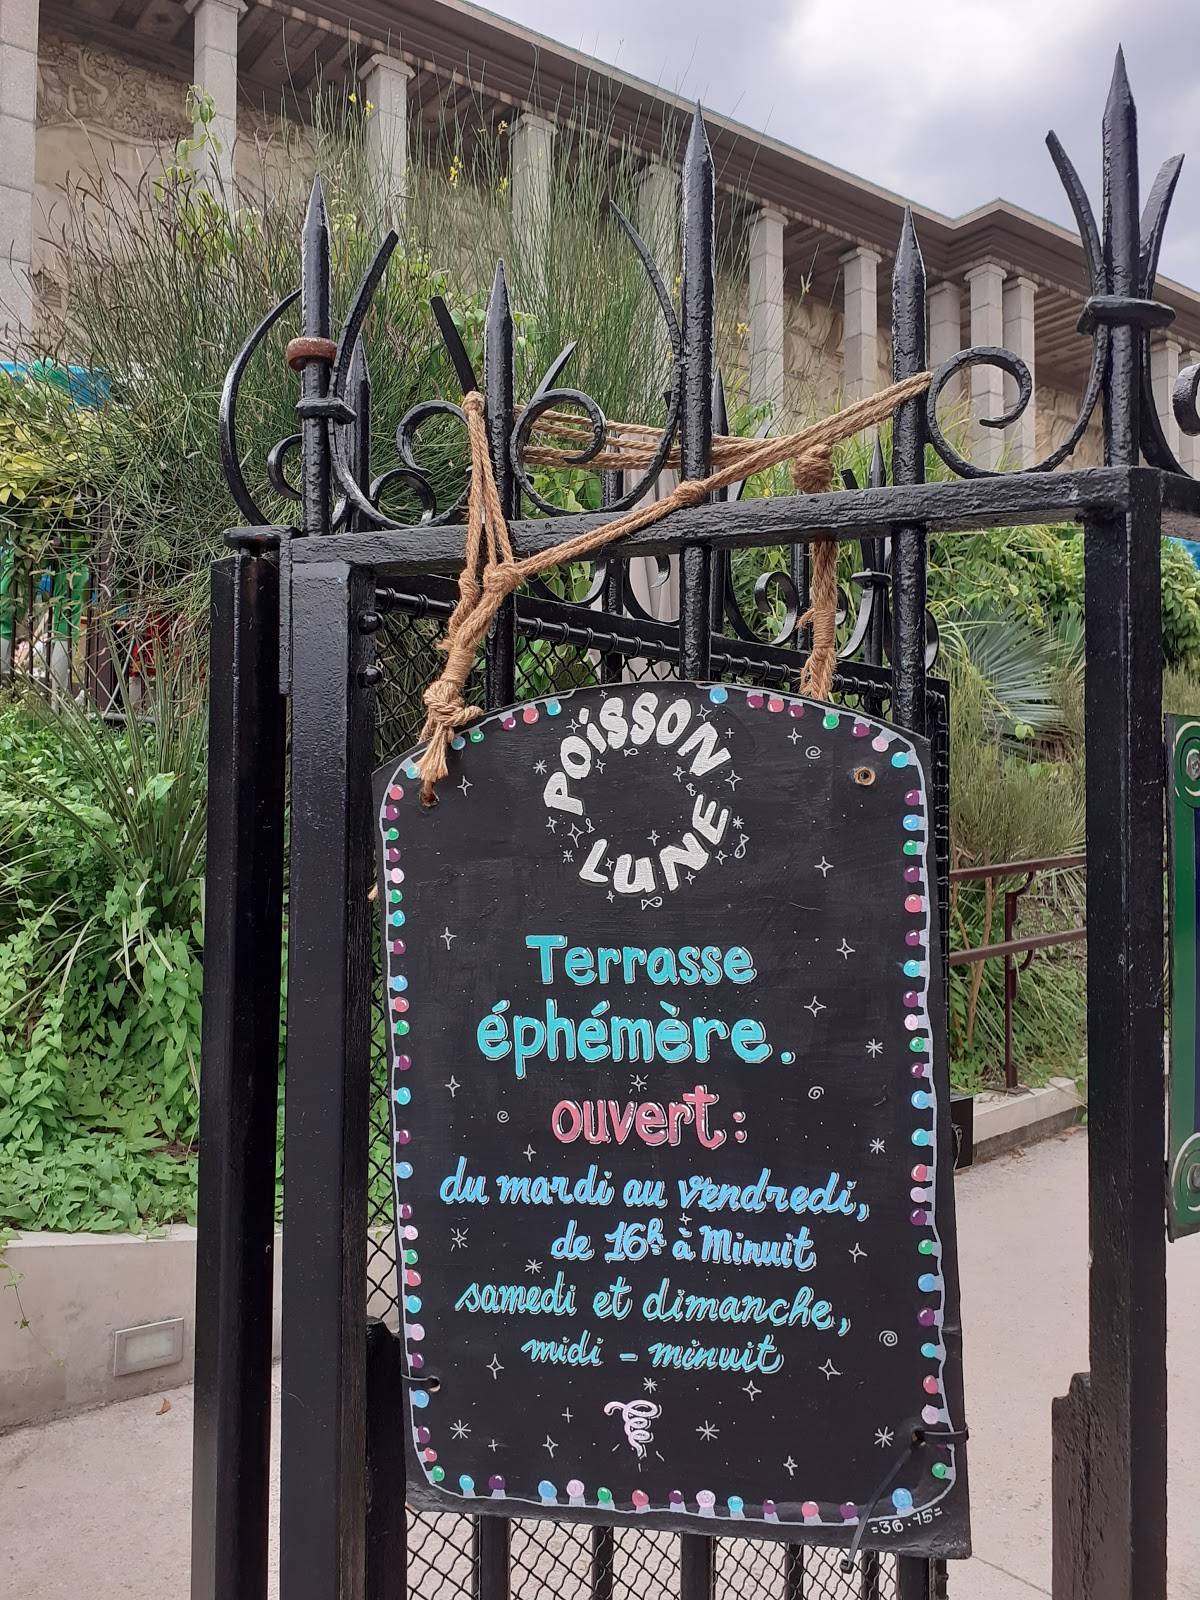 POiSSON
LUNE
Terrasse
éphémère.
ouvert:
du mardi au vendredi,
de 16h à Minuit
samedi et dimanche,
midi - minuit
=36.15=